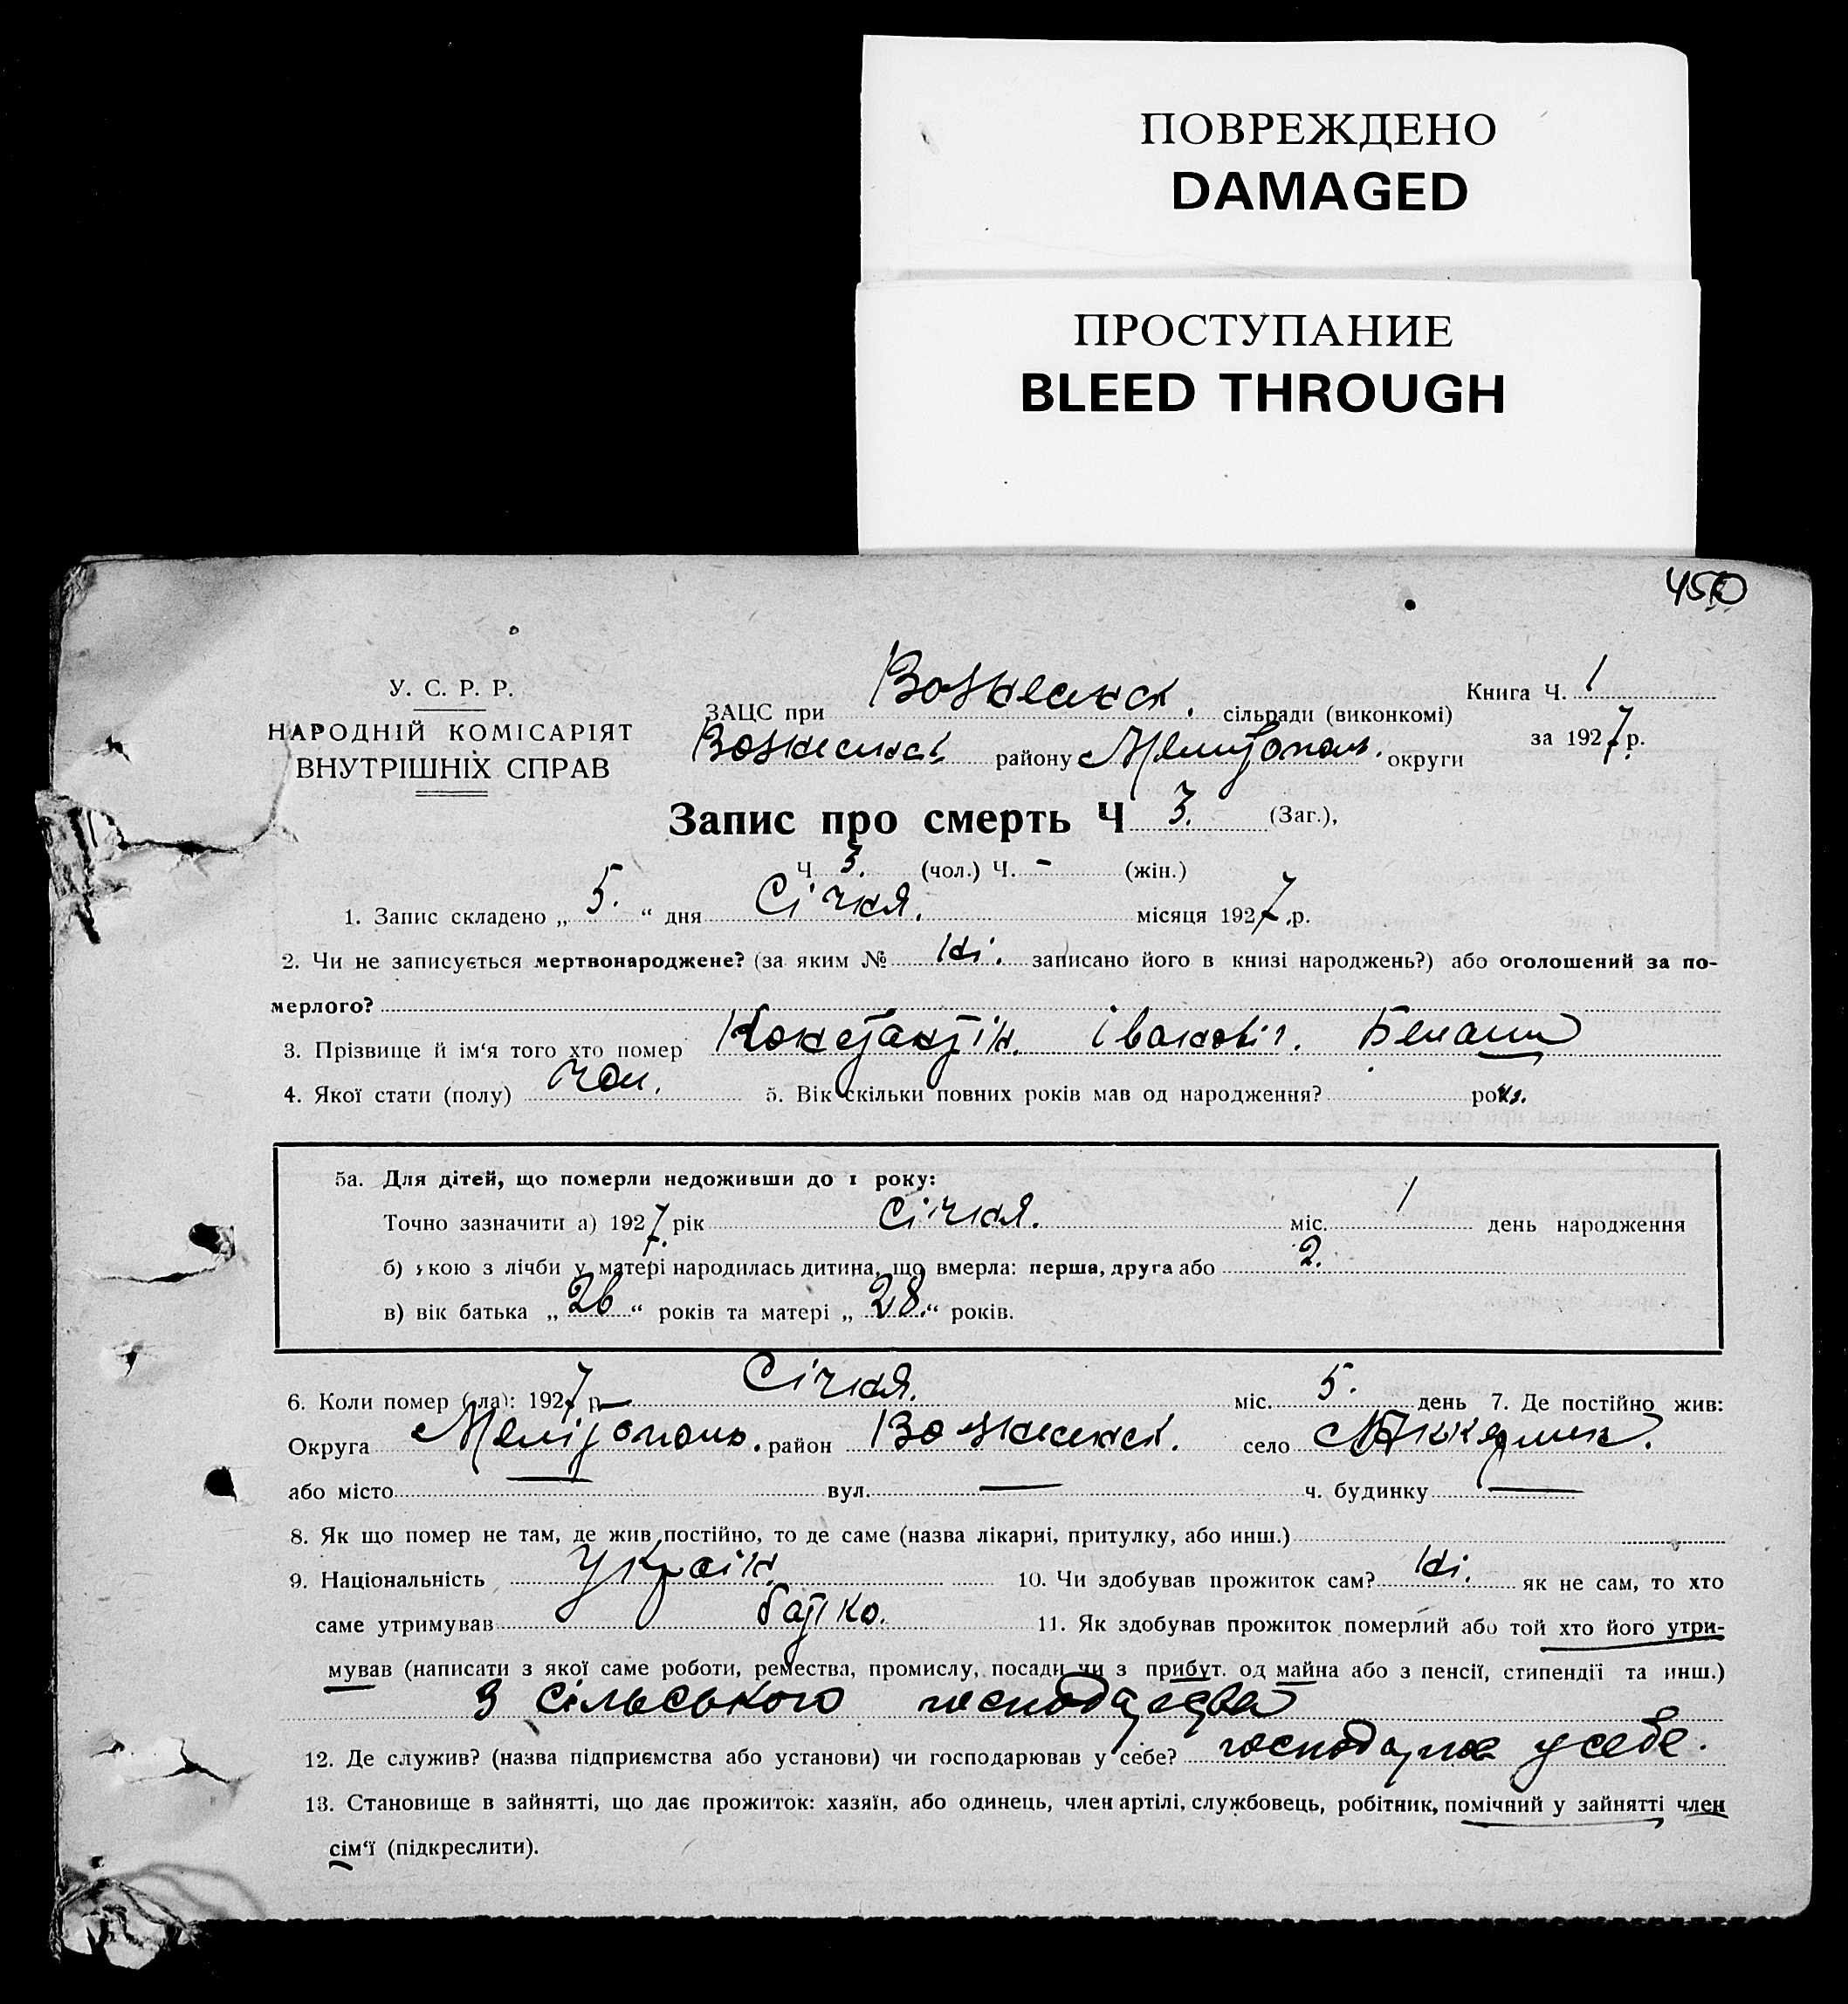 ПОВРЕЖДЕНО
DAMAGED
ПРОСТУПАНИЕ
BLEED THROUGH
450
У. С. Р. Р.
НАРОДНІЙ КОМІСАРІЯТ
ВНУТРІШНІХ СПРАВ
ЗАЦС при Вознесенск. сільради (виконкомі)
Вознесенськ району Мелітополь. округи
Книга Ч. 1
за 1927 р.
Запис про смерть Ч 3. (Заг.),
Ч 3. (чол.) Ч. - (жін.)
1. Запис складено „ 5. “ дня Січня. місяця 1927 .р.
2. Чи не записується мертвонароджене? (за яким № Ні. записано його в книзі народжень?) або оголошений за по-
мерлого?
3. Прізвище й ім‘я того хто помер Константін. Іванович.
4. Якої стати (полу) Чол. 5. Вік скільки повних років мав од народження? рок.
5а. Для дітей, що померли недоживши до 1 року:
Точно зазначити а) 1927 рік Січня. міс. 1 день народження
б) якою з лічби у матері народилась дитина, що вмерла: перша, друга або 2.
в) вік батька „ 26 “ років та матері „ 28. “ років.
6. Коли помер (ла): 1927 р Січня. міс. 5. день 7. Де постійно жив:
Округа Мелітополь. район Вознесенськ. село
або місто — вул. — ч. будинку —
8. Як що помер не там, де жив постійно, то де саме (назва лікарні, притулку, або инш.)
9. Національність Україн. 10. Чи здобував прожиток сам? Ні. як не сам, то хто
саме утримував батко. 11. Як здобував прожиток померлий або той хто його утри-
мував (написати з якої саме роботи, ремества, промислу, посади чи з прибут. од майна або з пенсії, стипендії та инш.)
З сільського господарства
12. Де служив? (назва підприємства або установи) чи господарював у себе? господарює у себе.
13. Становище в зайнятті, що дає прожиток: хазяїн, або одинець, член артілі, службовець, робітник, помічний у зайнятті член
сім‘ї (підкреслити).